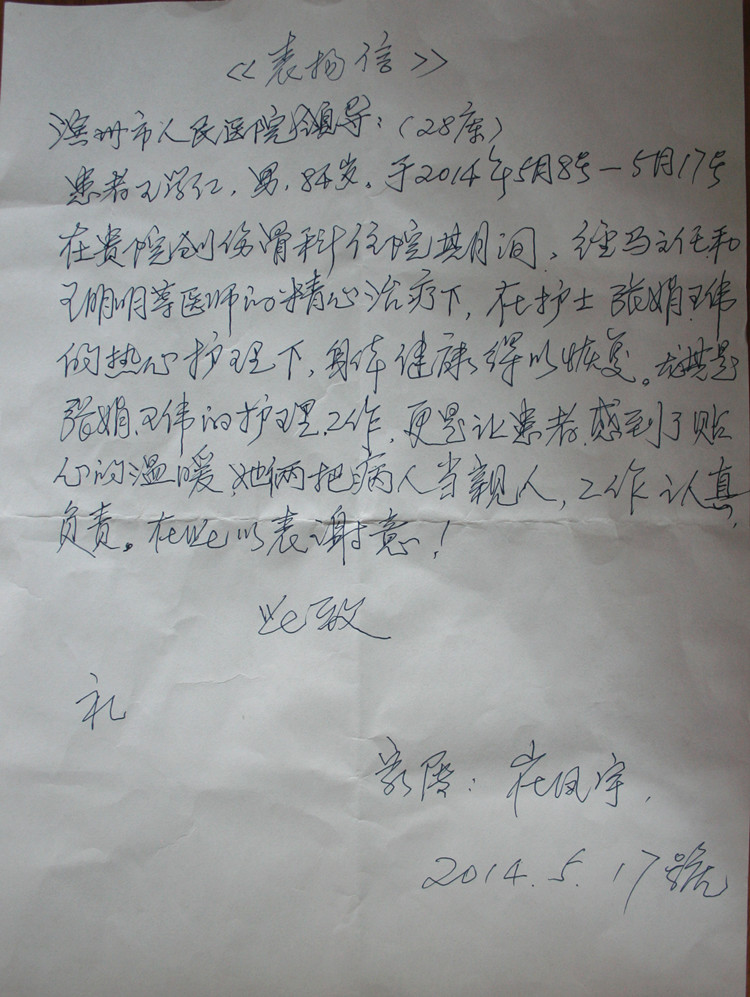 《表扬信》
滨州市人民医院领导：（28床）
患者王学仁，男，84岁。于2014年5月8号—5月17号
在贵院创伤骨科住院其月间、经马主任和
王明明等医师的精心治疗下，在护士张娟.王伟
的热心护理下，身体健康得以恢复。尤其是
张娟.王伟的护理工作，更是让患者感到了贴
心的温暖，她俩把病人当亲人，工作认真，
负责。在此以表谢意！
此致
礼
家属：崔凤宇.
2014.5.17号